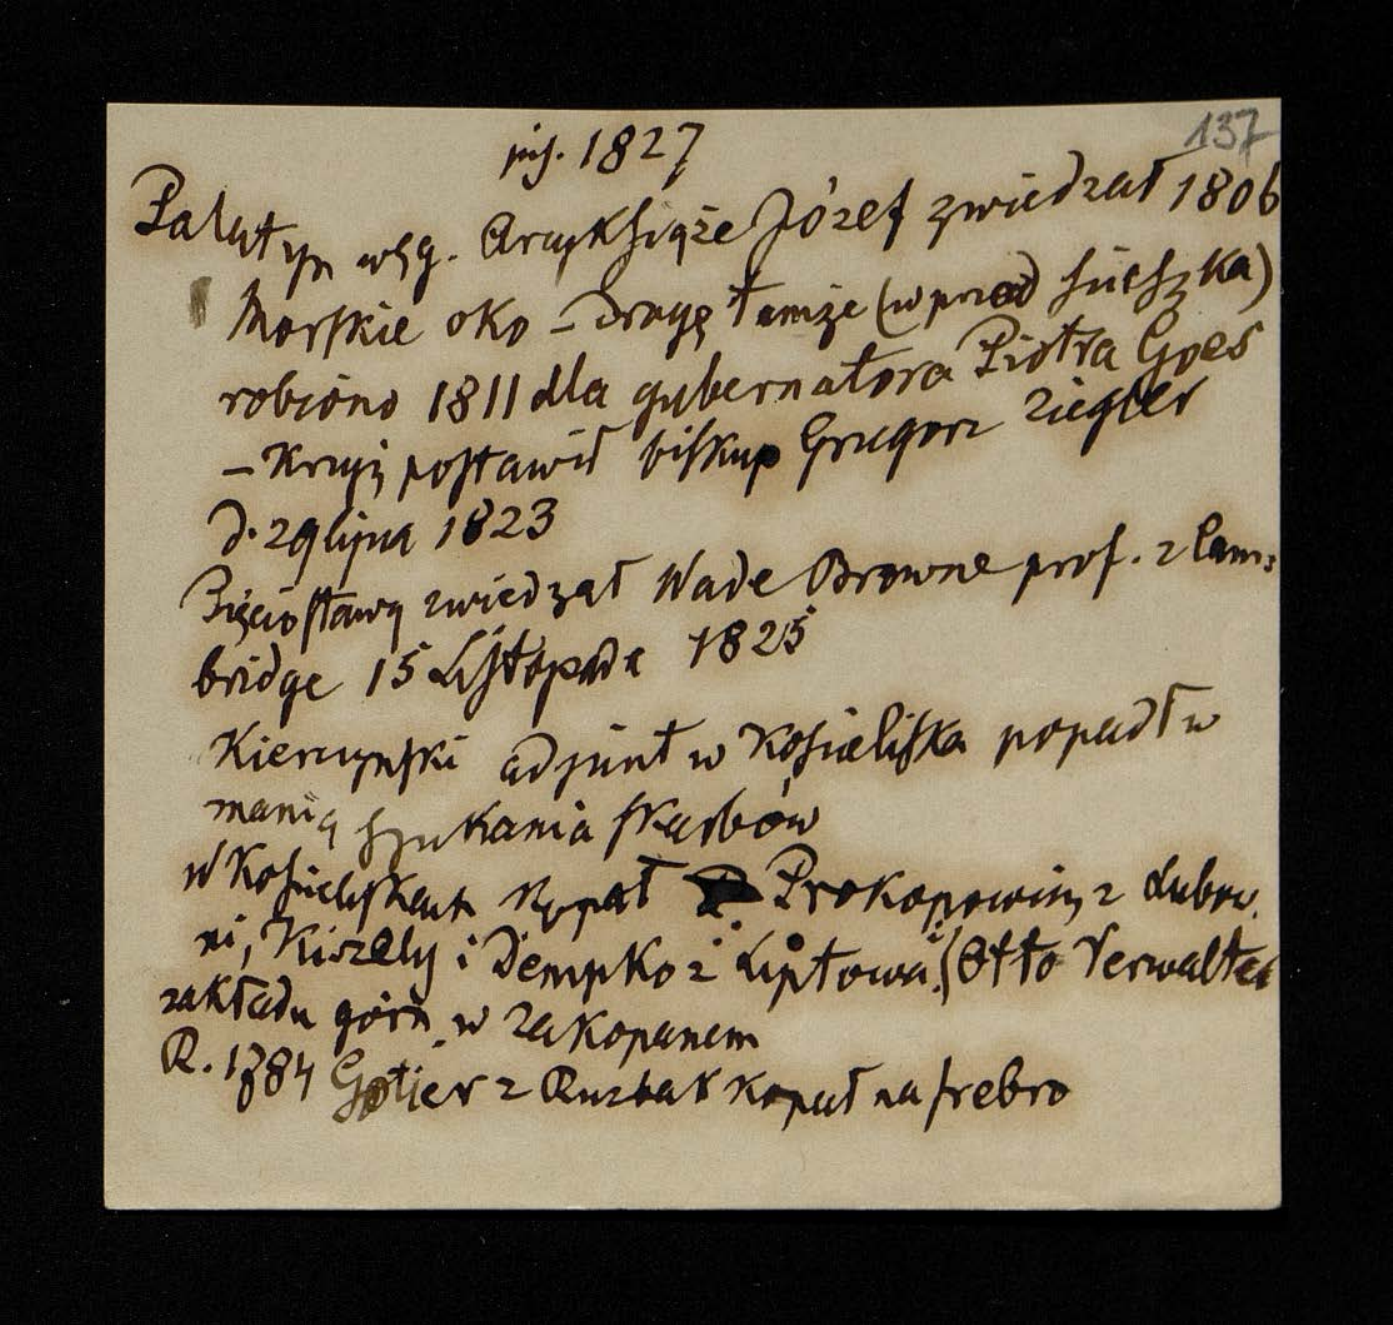 137
pis. 1827
Palatyn węg. Arcyksiąże Józef zwiedzał 1806
Morskie oko – Drogę tamże (wprzód ścieszka)
robiono 1811 dla gubernatora Piotra Goes
– Krzyż postawił biskup Grzegorz Ziegler
d. 29 lipca 1823
Pięciostawy zwiedzał Wade Browne prof. z Cam=
bridge 15 Listopada 1825
Kierczyński adjunt w Kościeliska popadł w
manią szukania skarbów
w Kościeliskach kopał Prokopowicz z Lubow.
ni, Kiszely i Dempko z Liptowa. (Otto Verwalter
zakładu górn. w Zakopanem
R. 1784 Gotier z Ruszbak kopał na srebro